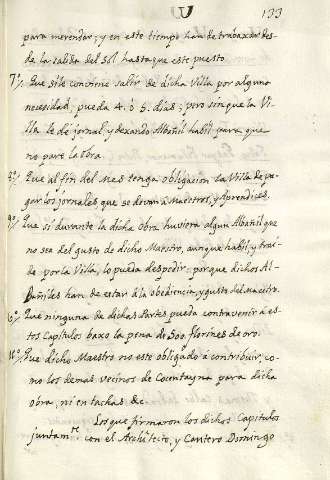 133
para merendar; y en este tiempo han de trabaxar des-
de la salida del Sol hasta que este puesto.
7.º Que si le conviene salir de dicha Villa por alguna
necesidad, pueda 4. ó 5. dias; pero sin que la Vi-
lla le de jornal, y dexando Albañil habil para que
no pare la obra.
8.º Que al fin del mes tenga obligacion la Villa de pa-
gar los jornales que se devan a Maestros, y Aprendices.
9.º Que si durante la dicha obra huviera algun Albañil que
no sea del gusto de dicho Maestro, aunque habil, y traí-
do por la Villa, lo pueda despedir: porque dichos Al-
bañiles han de estar á la obediencia, y gusto del maestro.
Que ninguna de dichas Partes pueda contravenir á es-
tos Capitulos baxo la pena de 500 florines de oro.
Que dicho Maestro no este obligado á contribuir, co-
mo los demas vecinos de Cocentayna para dicha
obra, ni en tachas &c.
Los que firmaron los dichos Capitulos
juntamte. con el Architecto, y Cantero Domingo